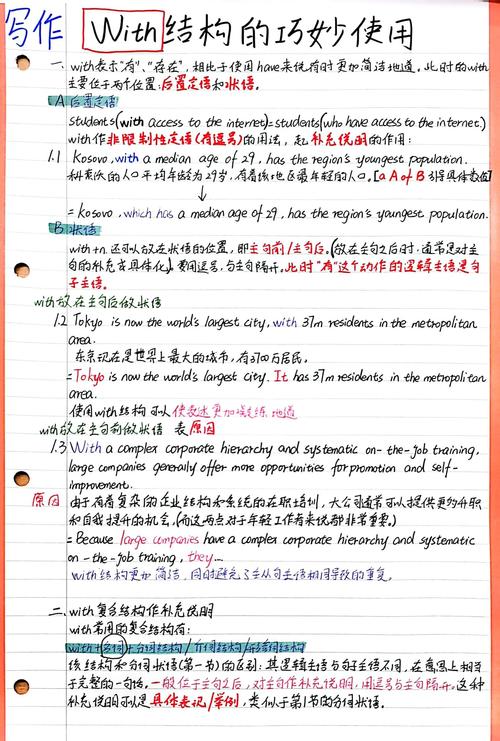 写作 With结构的巧妙使用
一、with表示"有"、"存在", 相比于使用have来说有时更加简洁地道。此时的with
主要位于两个位置:后置定语和状语。
A 后置定语
students(with access to the internet)=students(who have access to the internet.)
with作非限制性定语(有逗号)的用法, 起补充说明的作用:
1.1 Kosovo, with a median age of 29, has the region's youngest population.
科索沃的人口平均年龄为29岁, 有着该地区最年轻的人口。[a A of B 引导具体数值]
= Kosovo, which has a median age of 29, has the region's youngest population.
B 状语
with+n.还可以放在状语的位置, 即主句前/主句后。(放在主句之后时, 通常是对主
句的补充或具体化), 要用逗号, 与主句隔开。此时"有"这个动作的逻辑主语是句
子主语。
with放在主句后做状语
1.2 Tokyo is now the world's largest city, with 37m residents in the metropolitan
area.
东京现在是世界上最大的城市, 有3700万居民。
=Tokyo is now the world's largest city. It has 37m residents in the metropolitan
area.
使用with结构可以使表述更加凝练、地道
with放在主句前做状语 表原因
1.3 With a complex corporate hierarchy and systematic on-the-job training,
large companies generally offer more opportunities for promotion and self-
improvement.
原因 由于有着复杂的企业结构和系统的在职培训, 大公司通常可以提供更多升职
和自我提升的机会, (而这两点对于年轻工作者来说都非常重要。)
= Because large companies have a complex corporate hierarchy and systematic
-on-the-job training, they...
with结构更加简洁, 同时避免了主从句主语相同导致的重复。
二、with复合结构作补充说明
with常用的复合结构有:
with+名词+分词结构/介词结构/形容词结构
该结构和分词状语(第一节)的区别: 其逻辑主语与句子主语不同, 在意思上相当
于完整的一句话。一般位于主句之后, 对主句作补充说明, 用逗号与主句隔开。这种
补充说明可以是具体表记/举例, 类似于第1节的分词状语。